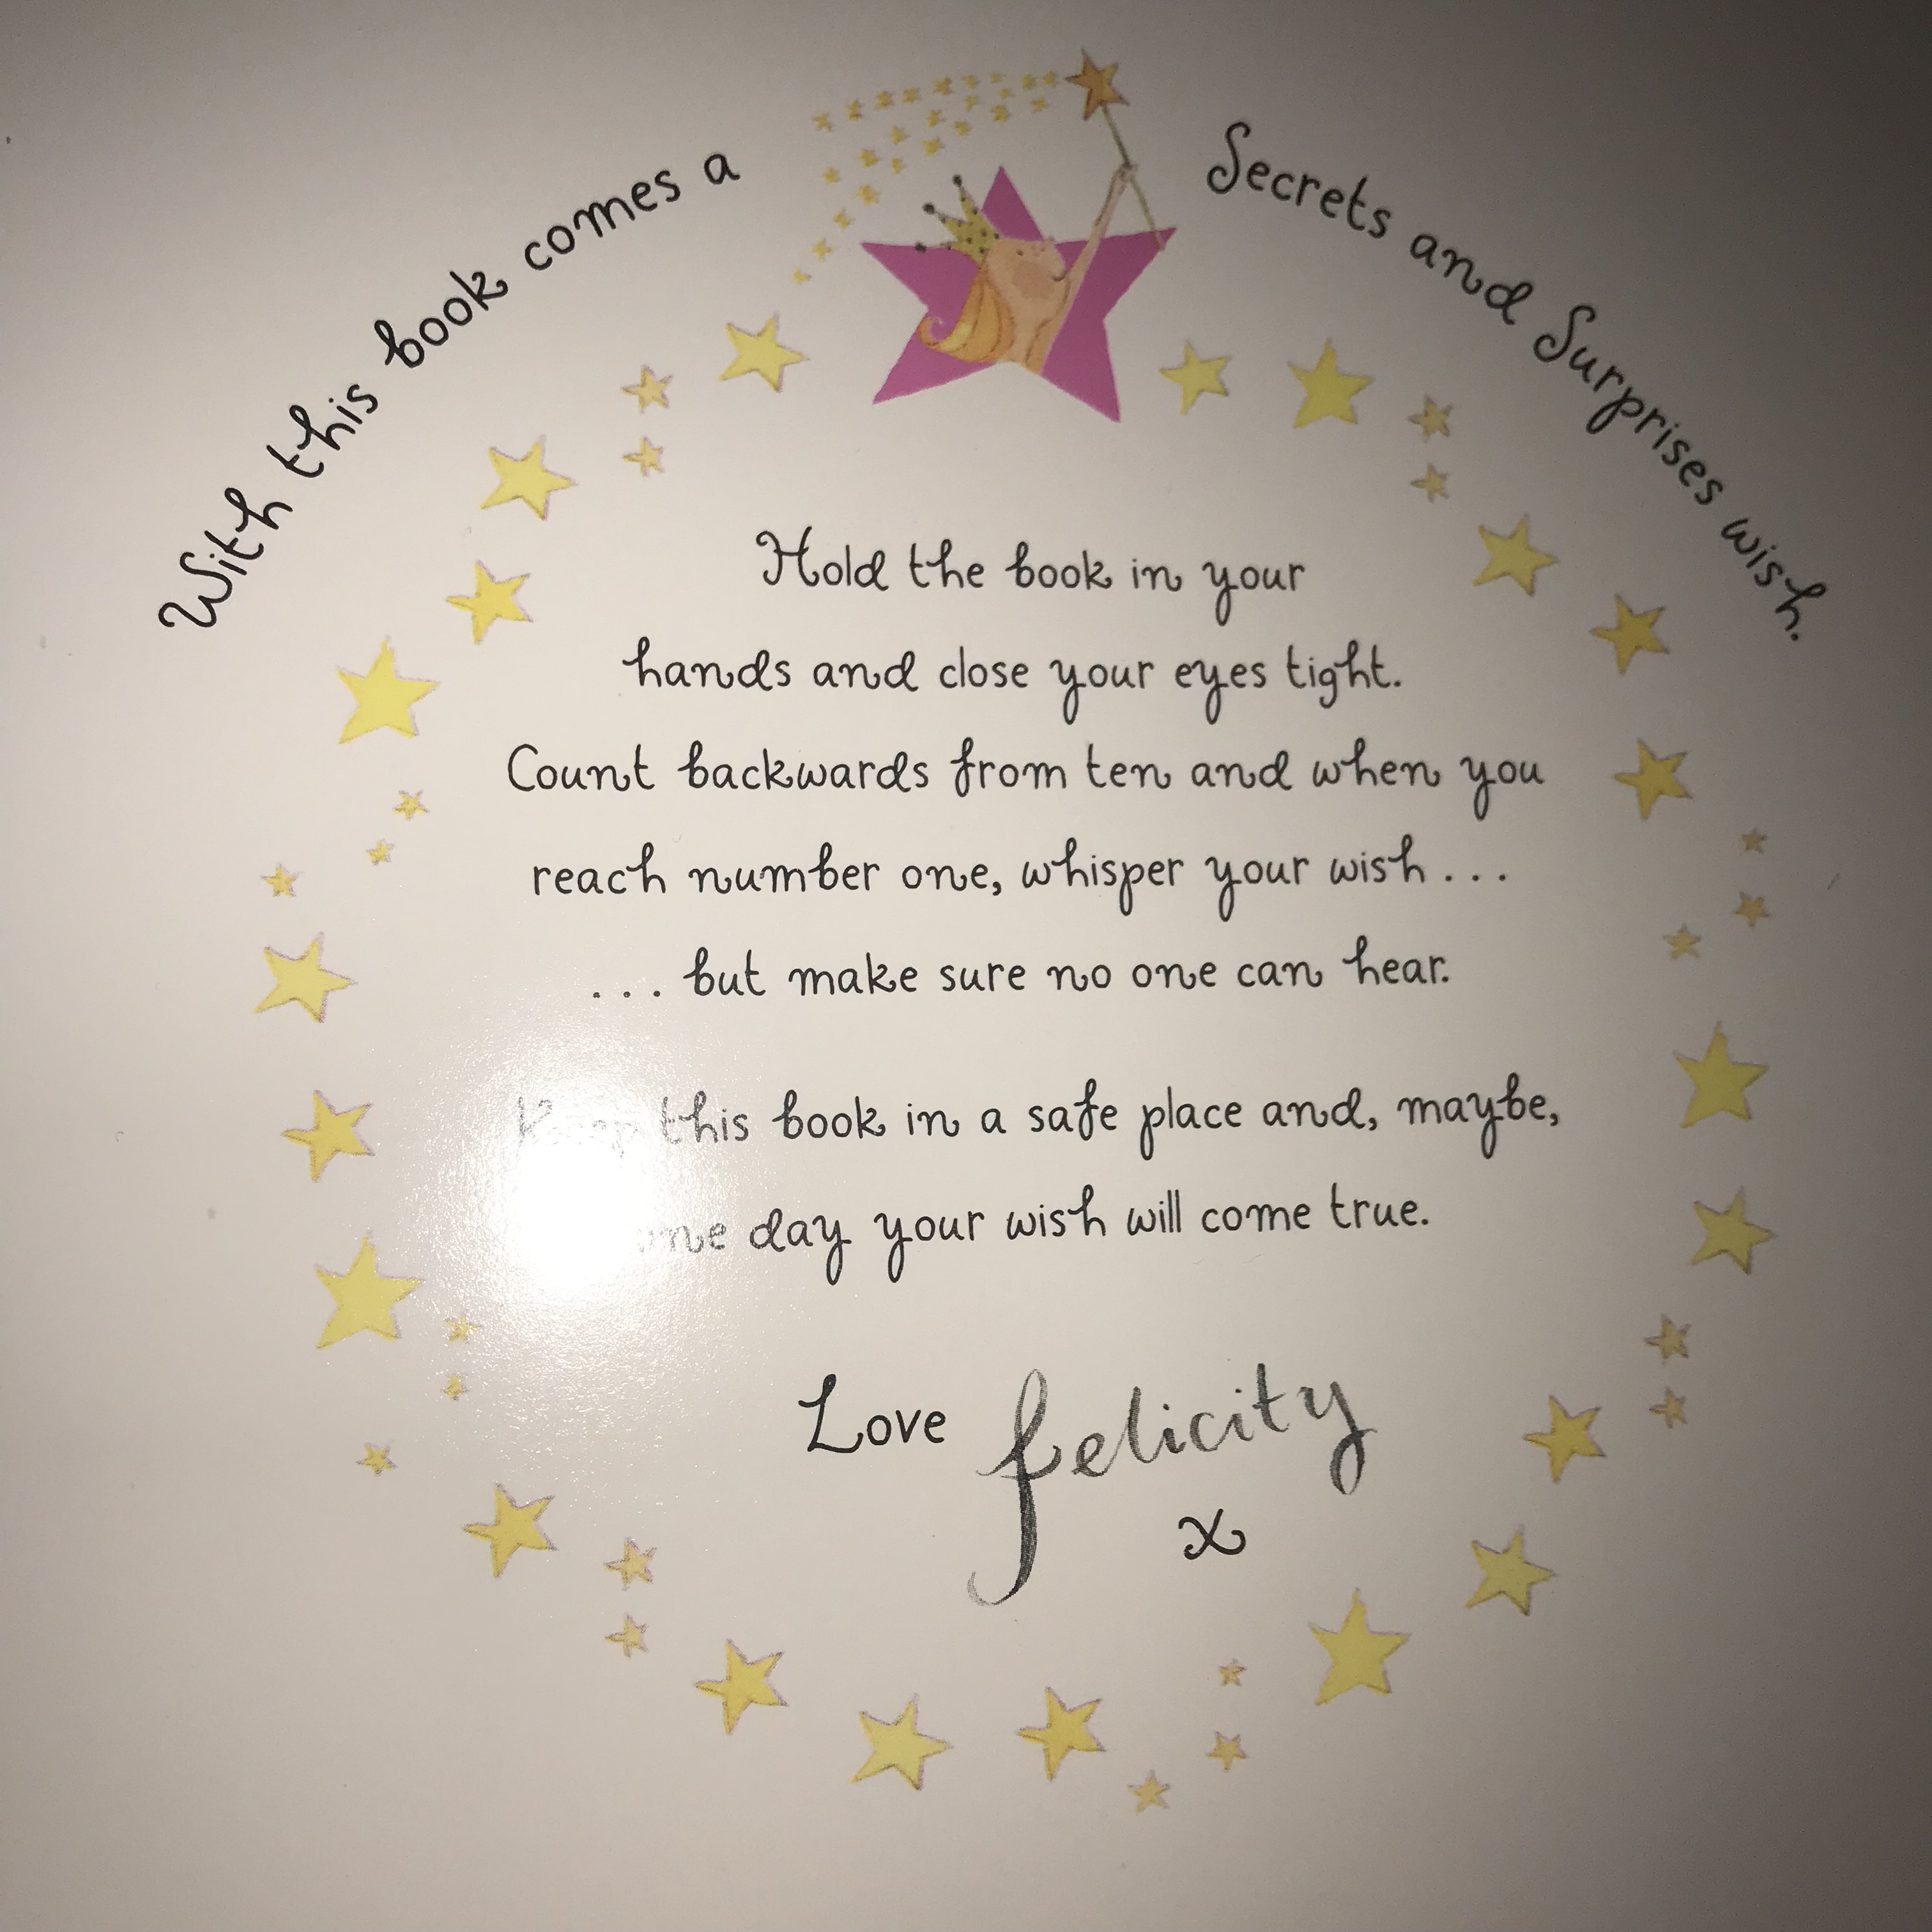 With this book comes a
Secrets and Surprises wish.
Hold the book in your
hands and close your eyes tight.
Count backwards from ten and when you
reach number one, whisper your wish...
...but make sure no one can hear.
Keep this book in a safe place and, maybe,
day your wish will come true.
Love felicity
x